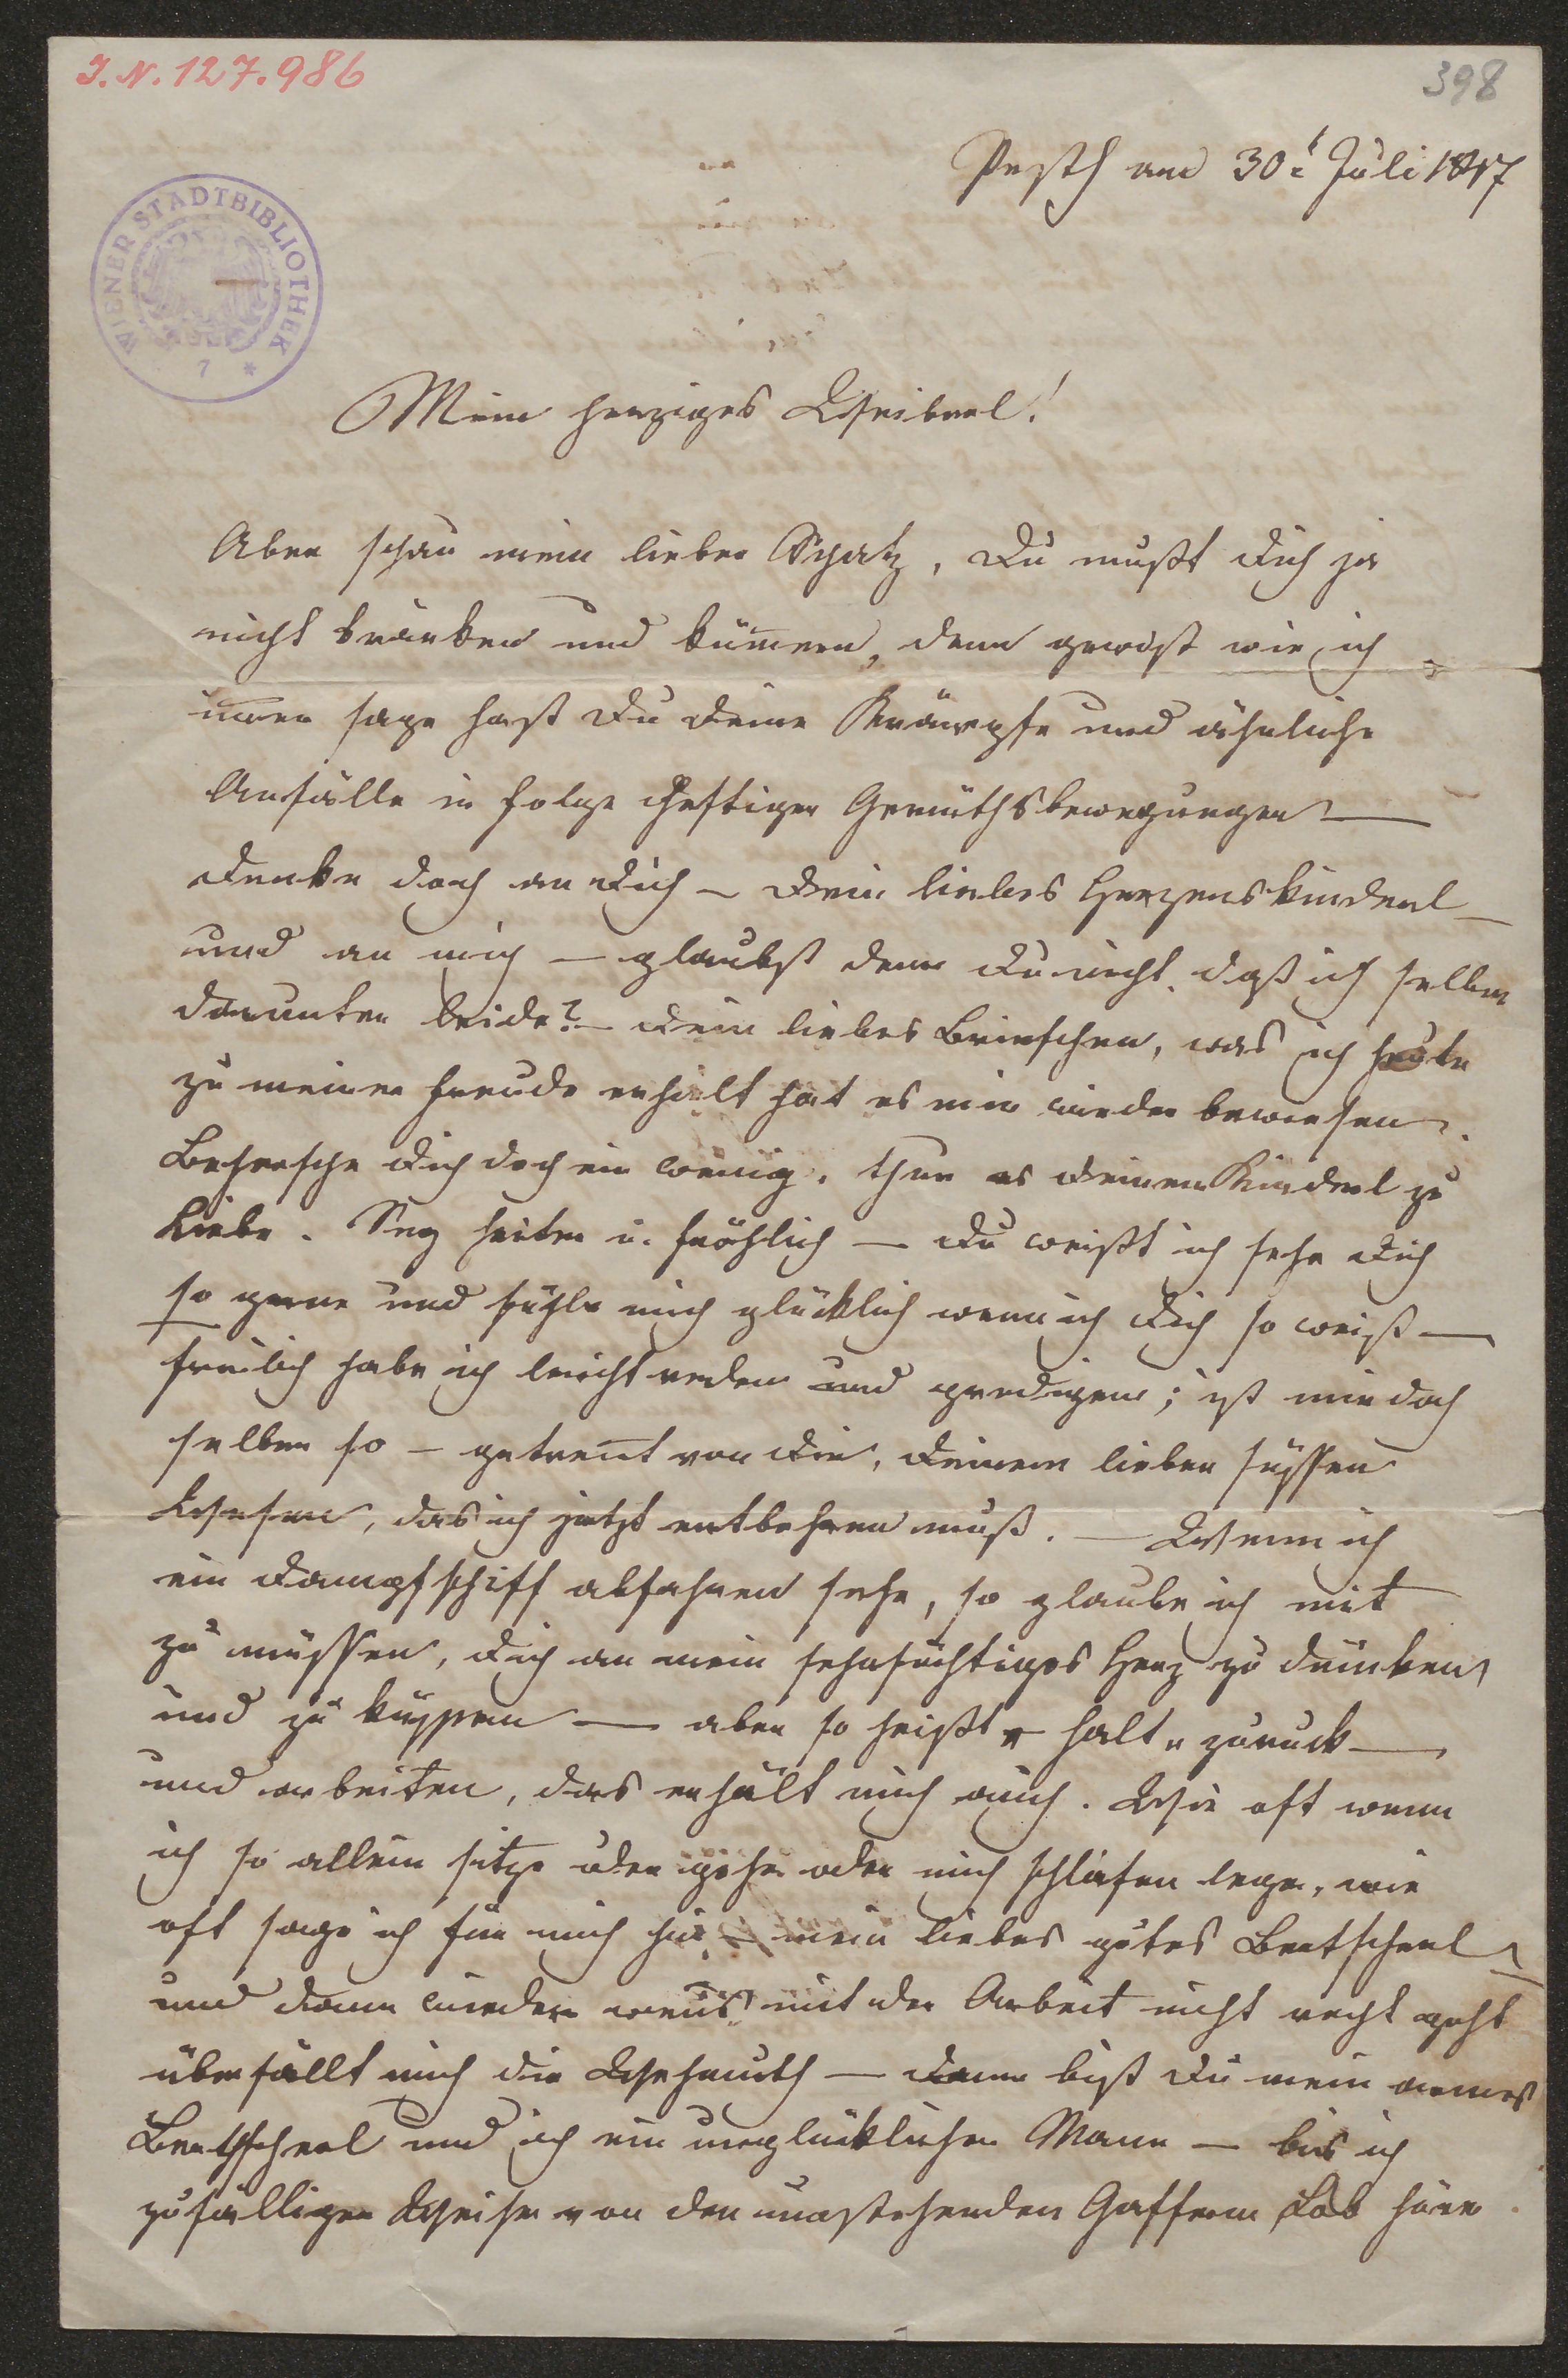 I. N. 127.986
398
WIENER STADTBIBLIOTHEK
7 *
Pesth am 30t Juli 1847
Mein herziges Weiberl!
Aber schau mein lieber Schatz, Du mußt Dich ja
nicht kränken und kümern, denn gewiß wie ich
imer sage hast Du Deine Krämpfe und ähnliche
Anfälle in Folge heftiger Gemüthsbewegungen —
Denke doch an Dich – Dein liebes Herzenskinderl –
und an mich – glaubst denn Du nicht daß ich selber
darunter leide? – Dein liebes Briefchen, was ich heute
zu meiner Freude erhielt hat es mir wieder bewiesen.
Beherrsche Dich doch ein wenig, thue es Deinem Kinderl zu
Liebe. Sey heiter u. fröhlich – Du weißt ich sehe Dich
so gerne und fühle mich glücklich wenn ich Dich so weiß —
freilich habe ich leicht reden und predigen; ist mir doch
selber so – getrent von Dir, Deinem lieben süssen
Wesen, das ich jetzt entbehren muß. — Wenn ich
ein Dampfschiff abfahren sehe, so glaube ich mit
zu müssen, Dich an mein sehnsüchtiges Herz zu drücken
und zu küssen — aber so heißt halt „zuruck —
und arbeiten, das erhält mich auch. Wie oft wenn
ich so allein sitze oder gehe oder mich schlafen lege, wie
oft sage ich für mich hin – mein liebes gutes Bertscherl –
und dann wieder wens mit der Arbeit nicht recht geht
überfällt mich die Wehmuth – dann bist Du mein armes
Bertscherl und ich ein unglücklicher Mann – bis ich
zufälliger Weise von den umstehenden Gaffern Lob höre.